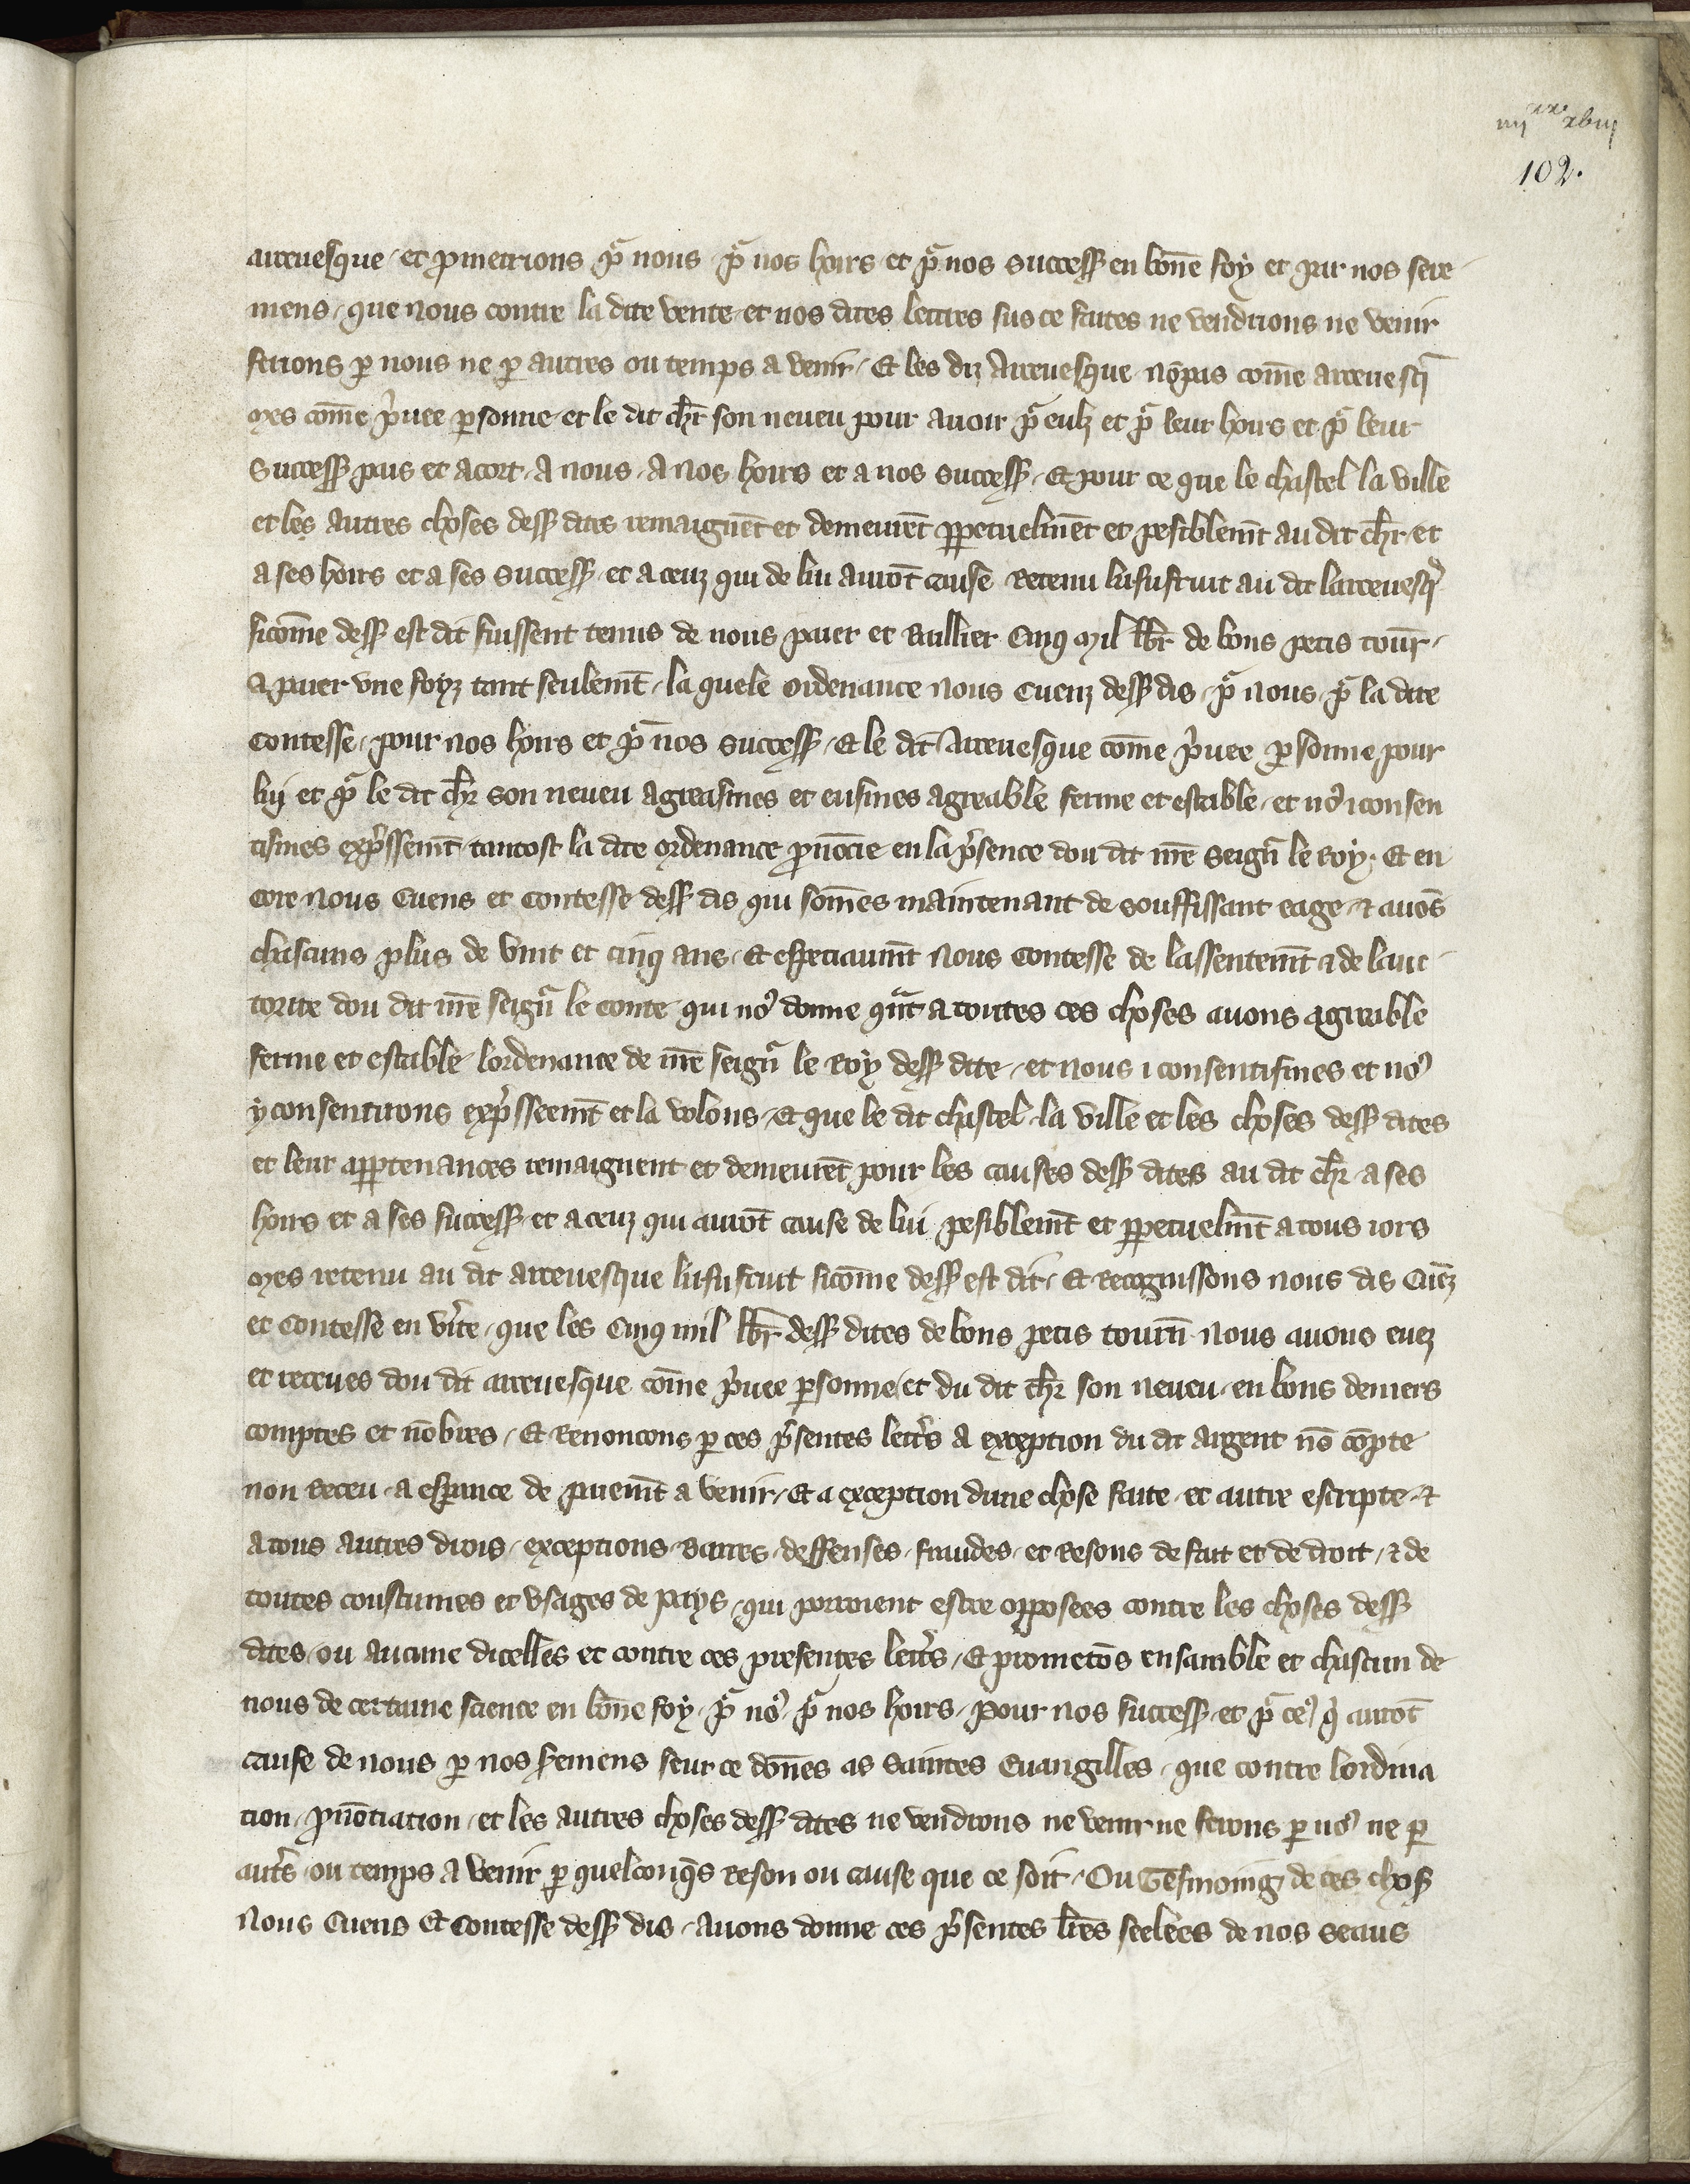 iiij xx xviij
102.
arceuesque et ꝓmetrions pᷓ nous pᷓ nos hoirs et pᷓ nos success̃ en bon̄e foy et par nos sere
mens que nous contre la dite vente et nos dites lettres sus ce faites ne vendrions ne venir
ferions ꝑ nous ne ꝑ autres ou temps a venir Et les diz Arceuesque nōpas com̄e arceuesq̃
Mes com̄e p̍uee ꝑsonne et le dit chr̄ son neueu pour auoir pᷓ eulz et pᷓ leur hoirs et pᷓ leur
success̃ pais et acort a nous a nos hoirs et a nos success̃ Et pour ce que le chastel la ville
et les autres choses dess̃ dites remaignēt et demeurēt ꝑpetuelmēt et pesiblem̄t au dit chr̄ et
a ses hoirs et a ses success̃ et a ceuz qui de lui aurōt cause Retenu lusufruit au dit larceuesq̃
sicom̄e dess̃ est dit fussent tenus de nous paier et Baillier Cinq Mil lb̄r de bons petis tour̄
A paier vne foyz tant seulem̄t la quele ordenance nous Cuenz dess̃ dis pᷓ nous pᷓ la dite
Contesse pour nos hoirs et pᷓ nos success̃ Et le dit Arceuesque com̄e p̍uee ꝑsonne pour
lui et pᷓ le dit chr̄ son neueu agreasmes et eusmes agreable ferme et estable et no᷒ iconsen
tismes exp̍ssem̄t tantost la dite ordenance ꝓnōcie en la p̍sence dou dit mr̄e seign̄ le Roy Et en
core nous Cuens et Contesse dess̃ dis qui som̄es maintenant de souffissant eage ⁊ auōs
chascuns plus de vint et cinq ans Et especiaum̄t nous Contesse de lassentem̄t ⁊ de lauc
torite dou dit mr̄e seign̄ le Conte qui no᷒ donne qᷓnt a toutes ces choses auons agreable
ferme et estable lordenance de mr̄e seign̄ le Roy dess̃ dite et nous i consentismes et no᷒
y consentirons exp̍sseem̄t et la volons Et que le dit chastel la ville et les choses dess̃ dites
et leur apꝑtenances remaignent et demeurēt pour les causes dess̃ dites au dit chr̄ a ses
hoirs et a ses success̃ et a ceuz qui aurōt cause de lui pesiblem̄t et ꝑpetuelm̄t a tous iors
Mes retenu au dit arceuesque lusufruit sicom̄e dess̃ est dit Et Recognissons nous dis Cuēz
et Contesse en v̍ite que les Cinq mil lb̄r dess̃ dites de bons petis tourn̄ nous auons euez
et receues dou dit arceuesque com̄e p̍uee ꝑsonne et du dit chr̄ son neueu en bons deniers
comptes et nōbres Et Renoncons ꝑ ces p̍sentes lettr̍s a exception du dit argent nō cōpte
non Receu a esꝑance de paiem̄t a venir Et a exception dune chose faite et autre escripte ⁊
a tous autres drois exceptions Barres deffenses fraudes et Resons de fait et de droit ⁊ de
toutes coustumes et vsages de Pays qui porroient estre opposees contre les choses dess̃
dites ou aucune dicelles et contre ces presentes lettr̍s Et prometōs ensamble et chascun de
nous de certaine science en bon̄e foy pᷓ no᷒ pᷓ nos hoirs Pour nos success̃ et pᷓ ce᷒ q̍ aurōt
cause de nous ꝑ nos s̍emens seur ce don̄es as Saintes Euangilles que contre lordina
tion ꝓnōtiation et les autres choses dess̃ dites ne vendrons ne venir ne ferons ꝑ no᷒ ne ꝑ
autr̍s ou temps a venir ꝑ quelconq̄s Reson ou cause que ce soit Ou Tesmoing de ces chos̃
Nous Cuens Et Contesse dess̃ dis Auons donne ces p̍sentes lr̄es seelees de nos seaus